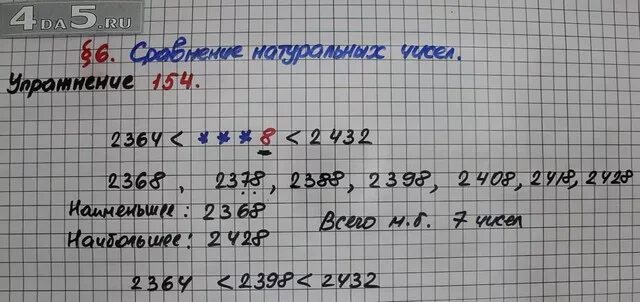 4DA5.RU
§6. Сравнение натуральных чисел.
Упражнение 154.
2364 < ***8 < 2432
2368, 2378, 2388, 2398, 2408, 2418, 2428
Наименьшее: 2368
Наибольшее: 2428
Всего м.б. 7 чисел
2364 < 2398 < 2432